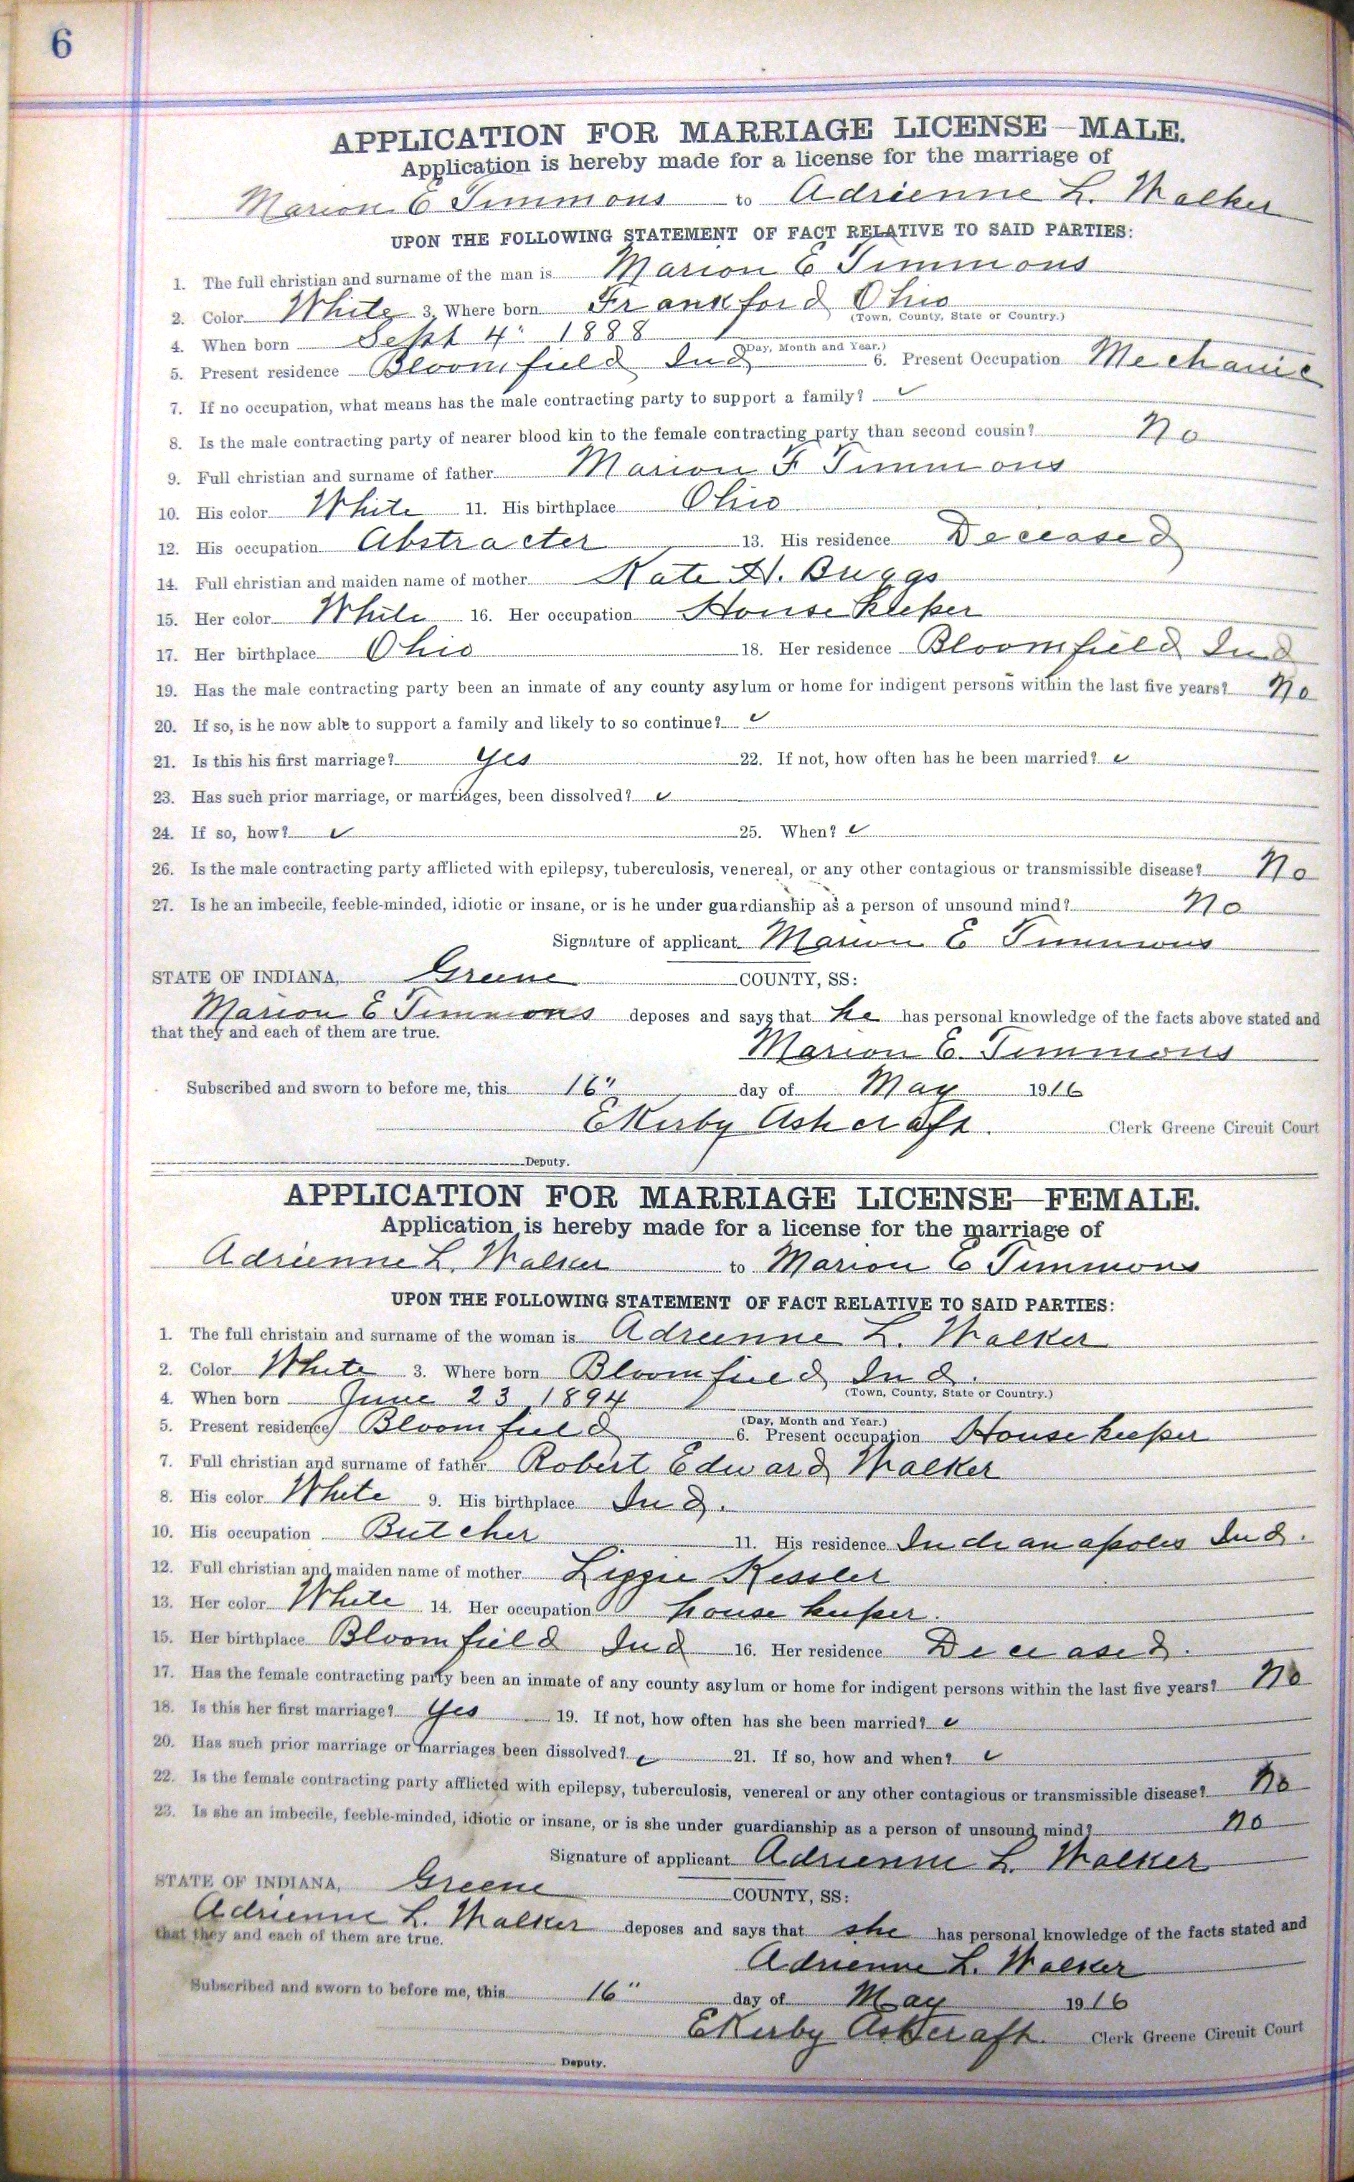 6
APPLICATION FOR MARRIAGE LICENSE—MALE.
Application is hereby made for a license for the marriage of
Marion E Timmons to Adrienne L. Walker
UPON THE FOLLOWING STATEMENT OF FACT RELATIVE TO SAID PARTIES:
1. The full christian and surname of the man is Marion E Timmons
2. Color White 3. Where born Frankford Ohio
(Town, County, State or Country.)
4. When born Sept 4" 1888
(Day, Month and Year.)
5. Present residence Bloomfield Ind 6. Present Occupation Mechanic
7. If no occupation, what means has the male contracting party to support a family? ✓
8. Is the male contracting party of nearer blood kin to the female contracting party than second cousin? No
9. Full christian and surname of father Marion F Timmons
10. His color White 11. His birthplace Ohio
12. His occupation Abstracter 13. His residence Deceased
14. Full christian and maiden name of mother Kate H. Briggs
15. Her color White 16. Her occupation House keeper
17. Her birthplace Ohio 18. Her residence Bloomfield Ind
19. Has the male contracting party been an inmate of any county asylum or home for indigent persons within the last five years? No
20. If so, is he now able to support a family and likely to so continue? ✓
21. Is this his first marriage? Yes 22. If not, how often has he been married? ✓
23. Has such prior marriage, or marriages, been dissolved? ✓
24. If so, how? ✓ 25. When? ✓
26. Is the male contracting party afflicted with epilepsy, tuberculosis, venereal, or any other contagious or transmissible disease? No
27. Is he an imbecile, feeble-minded, idiotic or insane, or is he under guardianship as a person of unsound mind? No
Signature of applicant Marion E Timmons
STATE OF INDIANA, Greene COUNTY, SS:
Marion E Timmons deposes and says that he has personal knowledge of the facts above stated and
that they and each of them are true.
Marion E. Timmons
Subscribed and sworn to before me, this 16" day of May 1916
EKirby Ashcraft. Clerk Greene Circuit Court
Deputy.
APPLICATION FOR MARRIAGE LICENSE—FEMALE.
Application is hereby made for a license for the marriage of
Adrienne L. Walker to Marion E Timmons
UPON THE FOLLOWING STATEMENT OF FACT RELATIVE TO SAID PARTIES:
1. The full christain and surname of the woman is Adrienne L. Walker
2. Color White 3. Where born Bloomfield Ind.
(Town, County, State or Country.)
4. When born June 23 1894
(Day, Month and Year.)
5. Present residence Bloomfield 6. Present occupation House keeper
7. Full christian and surname of father Robert Edward Walker
8. His color White 9. His birthplace Ind.
10. His occupation Butcher 11. His residence Indianapolis Ind.
12. Full christian and maiden name of mother Lizzie Kessler
13. Her color White 14. Her occupation house keeper.
15. Her birthplace Bloomfield Ind 16. Her residence Deceased.
17. Has the female contracting party been an inmate of any county asylum or home for indigent persons within the last five years? No
18. Is this her first marriage? Yes 19. If not, how often has she been married? ✓
20. Has such prior marriage or marriages been dissolved? ✓ 21. If so, how and when? ✓
22. Is the female contracting party afflicted with epilepsy, tuberculosis, venereal or any other contagious or transmissible disease? No
23. Is she an imbecile, feeble-minded, idiotic or insane, or is she under guardianship as a person of unsound mind? No
Signature of applicant Adrienne L. Walker
STATE OF INDIANA, Greene COUNTY, SS:
Adrienne L. Walker deposes and says that she has personal knowledge of the facts stated and
that they and each of them are true.
Adrienne L. Walker
Subscribed and sworn to before me, this 16" day of May 1916
EKirby Ashcraft. Clerk Greene Circuit Court
Deputy.